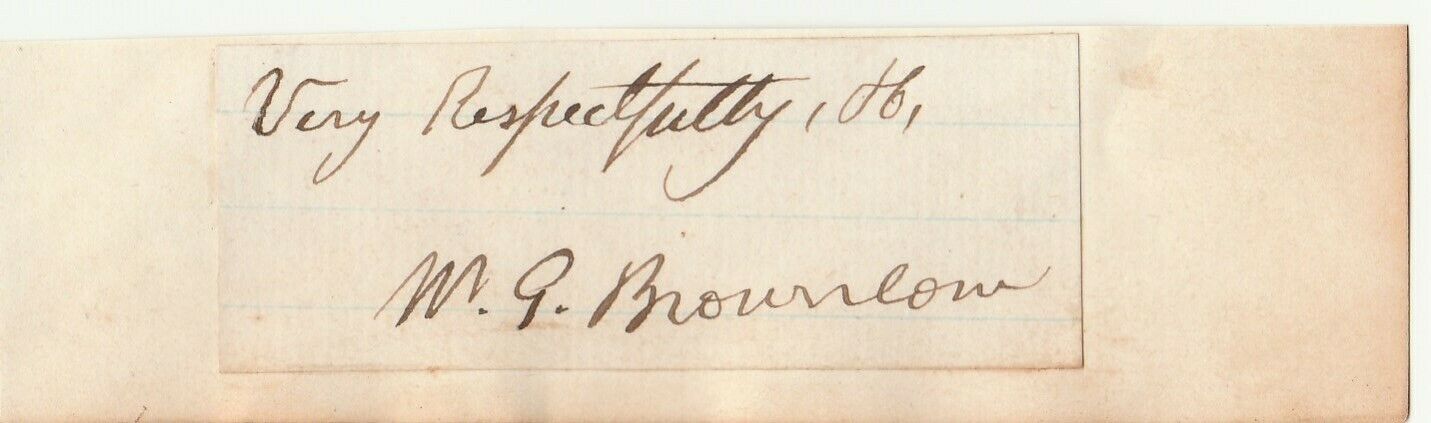 Very Respectfully, &c,
W. G. Brownlow